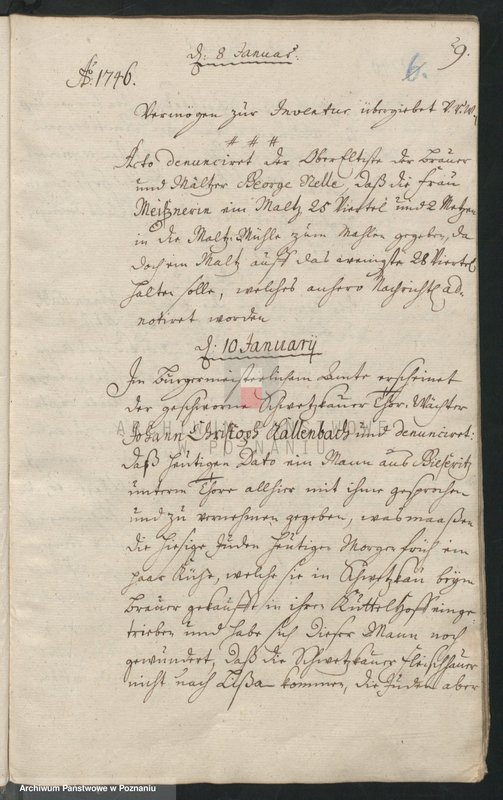 9.
6.
d: 8 Januar:
Ao: 1746.
Vermögen zur Inventur übergiebet
# # #
Acto denunciret der OberEltiste der Bräuer
und Mältzer George Nelle, daß die Frau
Meißnerin ein Maltz 25 Viertel und 2 Metzen
in die Maltz-Mühle zum Mahlen gegeben, da
doch ein Maltz auff das wenigste 28 Viertel
halten solle, welches anhero Nachrichtl: ad-
notiret worden
d: 10 Januarij
Im Bürgermeisterlichem Amte erscheinet
der geschworne Schwetzkauer Thor-Wächter
Johann Christoph Kallenbach und denunciret:
daß heütigen Dato ein Mann aus
unterm Thore allhier mit ihme gesprochen
und zu vernehmen gegeben, was maaßen
die hiesige Juden heütigen Morgen früh ein
paar Kühe, welche sie in Schwetzkau beym
Bräuer gekaufft in ihren Küttelhoff einge-
trieben und habe sich dieser Mann noch
gewundert, daß die Schwetzkauer Fleischhauer
nicht nach Lißa kommen, die Juden aber
ARCHIWUM PAŃSTWOWE
W POZNANIU
Archiwum Państwowe w Poznaniu